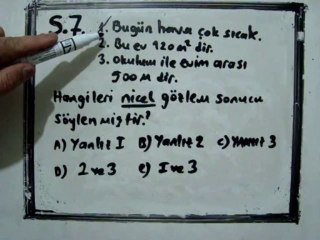 S.7. 1. Bugün hava çok sıcak.
2. Bu ev 120 m² dir.
3. Okulum ile evim arası
500 m dir.
Hangileri nicel gözlem sonucu
söylenmiştir?
A) Yanlız I B) Yanlız 2 C) Yanız 3
D) 2 ve 3 E) I ve 3